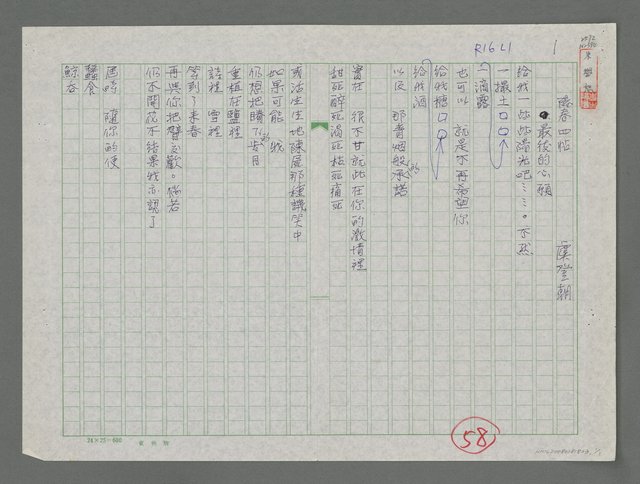 R16L1
1
暖春四帖
羅登朝
●最後的心願
給我一些些陽光吧……。不然
一撮土
一滴露
也可以 就是不再希望你
給我糖
給我酒
以及 那青烟般的承諾
實在 很不甘就此在你的激情裡
甜死醉死渴死枯死痛死
或活生生地陳屍那種譏笑中
如果可能 我
仍想把賸下的歲月
重植在鹽裡
詩裡 雪裡
等到了來春
再與你把臂交歡。倘若
仍不開花不結果我亦認了
屆時 隨你的便
蠶食
鯨吞
58
24×25=600